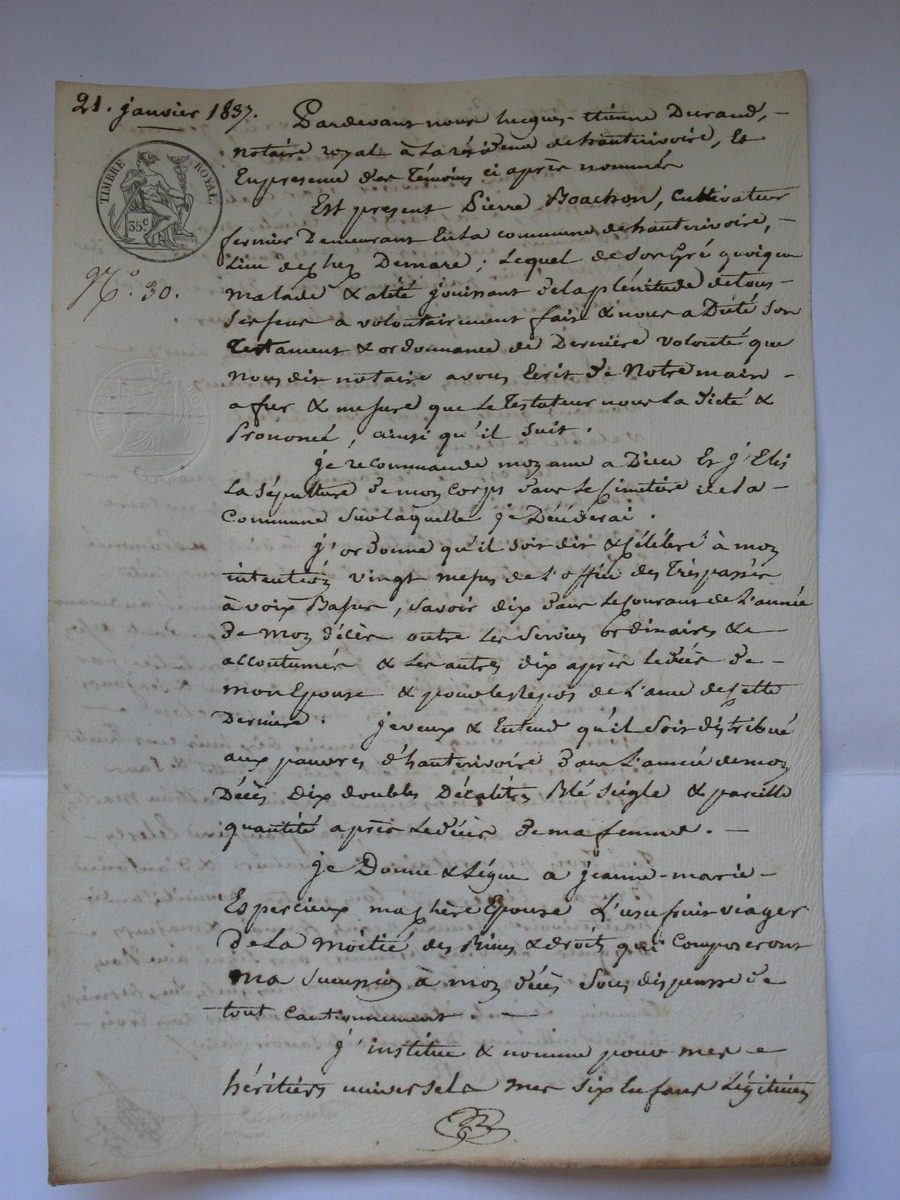 21. janvier 1837.
Pardevant nous Jacques-étienne Durand, -
notaire royal à La résidence de hauterivoire, Et
En presence des Témoins ci après nommés
TIMBRE ROYAL
35c
N.° 30.
Est present Pierre Boachon, Cultivateur
fermier Demeurant En la commune de hauterivoire, -
Lieu de chez Demare ; Lequel de Son Gré quoique
malade & alité jouissant de la plénitude de tous -
Ses sens a volontairement fait & nous a Dicté Son
Testament & ordonnance de Dernière volonté que
nous dit notaire avons Ecrit de Notre main -
a fur & mesure que Le Testateur nous La dicté &
Prononcé, ainsi qu'il suit.
je recommande mon ame a Dieu Et j'Elis
La Sépulture de mon Corps dans Le Cimetière de la -
Commune Sur laquelle je Décéderai.
j'ordonne qu'il soit dit & Célébré à mon
intention vingt messes de L'office des Trépassés
à voix Basse, Savoir dix dans Le Courant de L'année
de mon décès outre Les Services ordinaires & -
accoutumés & Les autres dix après le décès de -
mon Epouse & pour le repos de L'ame de Cette
Dernière. je veux & Entend qu'il Soit distribué
aux pauvres d'hauterivoire dans L'année de mon
Décès Dix doubles Décalitres Blé Seigle & pareille
quantité après Le décès de ma femme. -
je Donne & Lègue a jeanne-marie -
Espercieux ma chère Epouse L'usufruit viager
de La Moitié des Biens & droits qui Composeront
ma succession à mon décès Sous dispense de
tout Cautionnement. -
j'institue & nomme pour mes
héritiers universels mes Six Enfans Légitimes